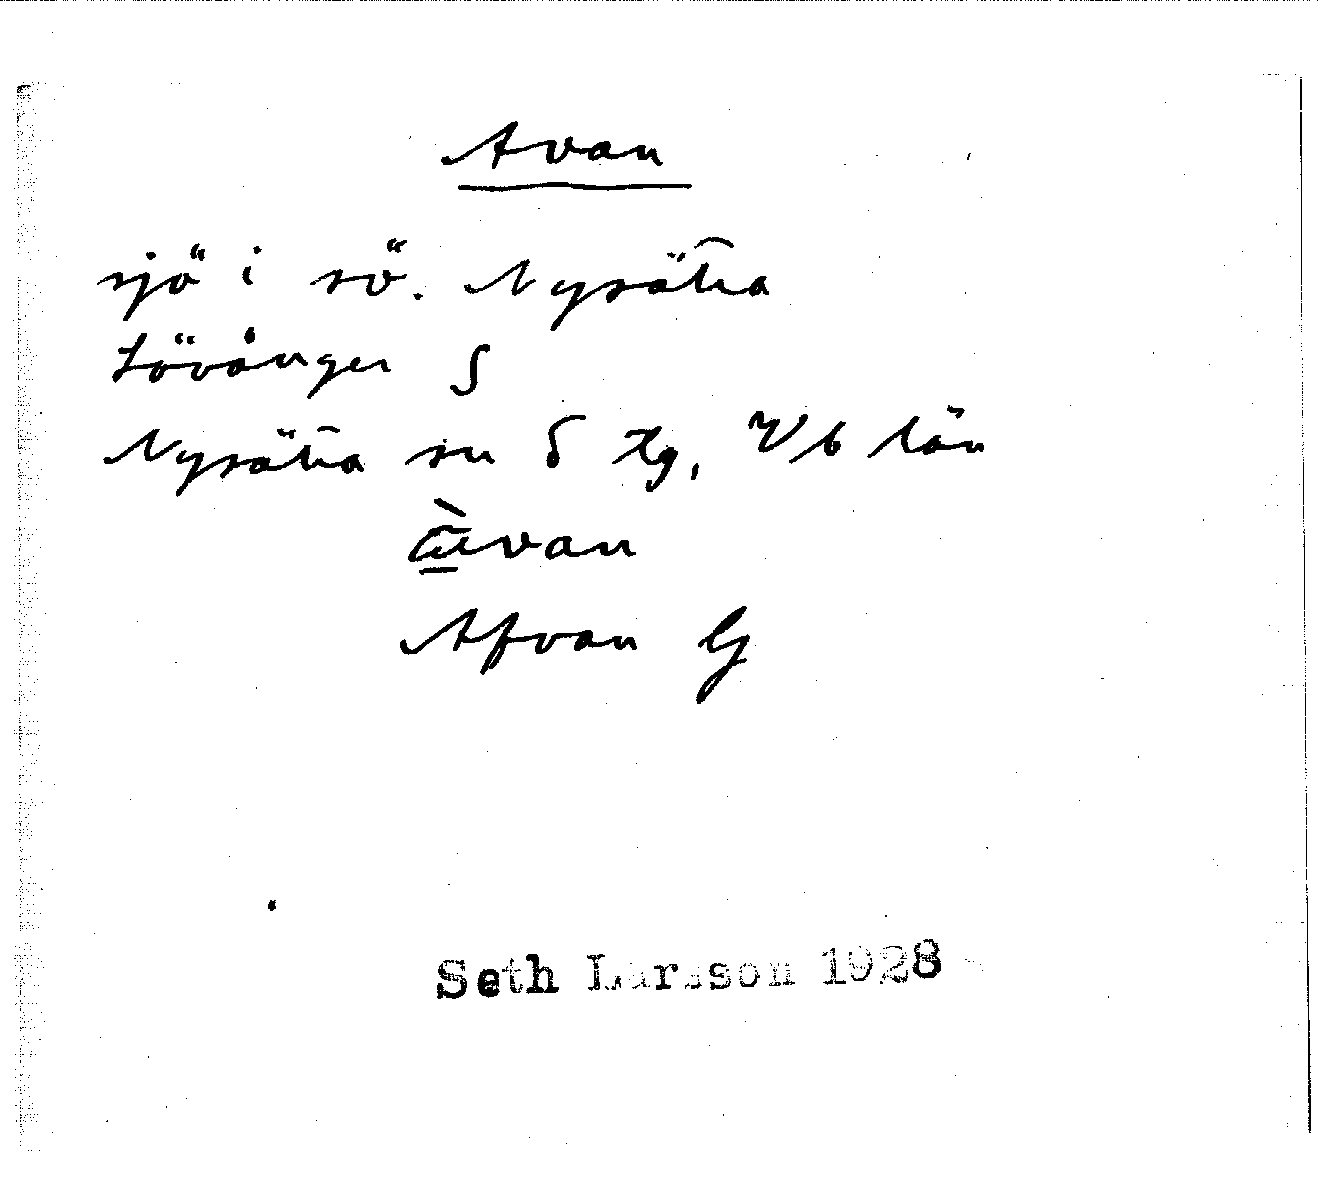 Avan
sjö i sö. Nysätra
Lövånger S
Nysätra sn S tg, Vb län
van
Afvan G
Seth Larsson 1928